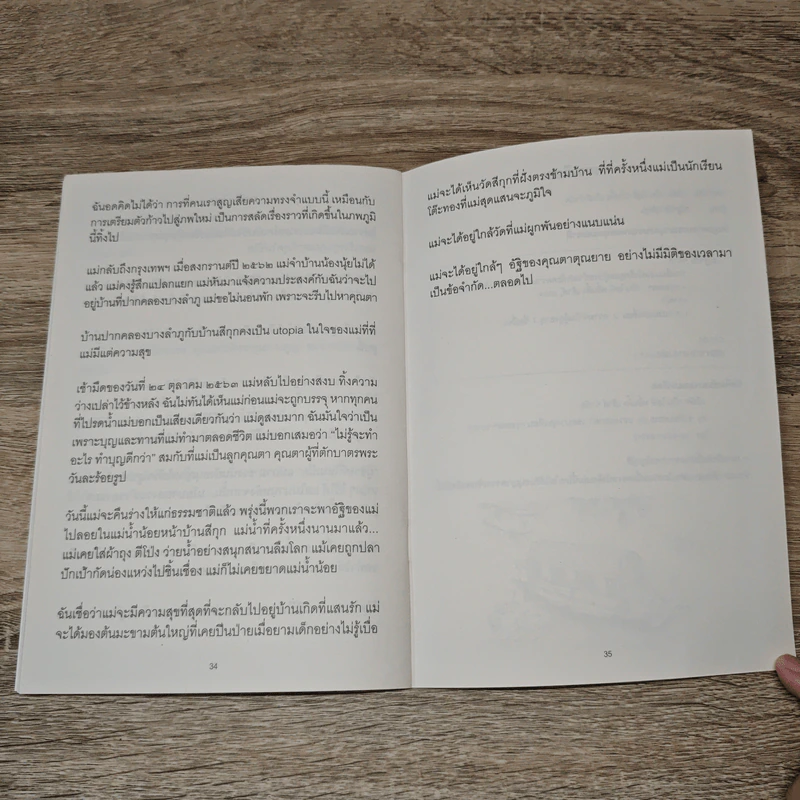 ฉันอดคิดไม่ได้ว่า การที่คนเราสูญเสียความทรงจำแบบนี้ เหมือนกับ
การเตรียมตัวก้าวไปสู่ภพใหม่ เป็นการสลัดเรื่องราวที่เกิดขึ้นในภพภูมิ
นี้ทิ้งไป
แม่กลับถึงกรุงเทพฯ เมื่อสงกรานต์ปี ๒๕๖๒ แม่จำบ้านน้องนุ้ยไม่ได้
แล้ว แม่คงรู้สึกแปลกแยก แม่หันมาแจ้งความประสงค์กับฉันว่าจะไป
อยู่บ้านที่ปากคลองบางลำภู แม่ขอไม่นอนพัก เพราะจะรีบไปหาคุณตา
บ้านปากคลองบางลำภูกับบ้านสีกุกคงเป็น utopia ในใจของแม่ที่ที่
แม่มีแต่ความสุข
เช้ามืดของวันที่ ๒๔ ตุลาคม ๒๕๖๓ แม่หลับไปอย่างสงบ ทิ้งความ
ว่างเปล่าไว้ข้างหลัง ฉันไม่ทันได้เห็นแม่ก่อนแม่จะถูกบรรจุ หากทุกคน
ที่ไปรดน้ำแม่บอกเป็นเสียงเดียวกันว่า แม่ดูสงบมาก ฉันมั่นใจว่าเป็น
เพราะบุญและทานที่แม่ทำมาตลอดชีวิต แม่บอกเสมอว่า "ไม่รู้จะทำ
อะไร ทำบุญดีกว่า" สมกับที่แม่เป็นลูกคุณตา คุณตาผู้ที่ตักบาตรพระ
วันละร้อยรูป
วันนี้แม่จะคืนร่างให้แก่ธรรมชาติแล้ว พรุ่งนี้พวกเราจะพาอัฐิของแม่
ไปลอยในแม่น้ำน้อยหน้าบ้านสีกุก แม่น้ำที่ครั้งหนึ่งนานมาแล้ว...
แม่เคยใส่ผ้าถุง ตีโป่ง ว่ายน้ำอย่างสนุกสนานลืมโลก แม้เคยถูกปลา
ปักเป้ากัดน่องแหว่งไปชิ้นเชื่อง แม่ก็ไม่เคยขยาดแม่น้ำน้อย
ฉันเชื่อว่าแม่จะมีความสุขที่สุดที่จะกลับไปอยู่บ้านเกิดที่แสนรัก แม่
จะได้มองต้นมะขามต้นใหญ่ที่เคยปีนป่ายเมื่อยามเด็กอย่างไม่รู้เบื่อ
34
แม่จะได้เห็นวัดสีกุกที่ฝั่งตรงข้ามบ้าน ที่ที่ครั้งหนึ่งแม่เป็นนักเรียน
โต๊ะทองที่แม่สุดแสนจะภูมิใจ
แม่จะได้อยู่ใกล้วัดที่แม่ผูกพันอย่างแนบแน่น
แม่จะได้อยู่ใกล้ๆ อัฐิของคุณตาคุณยาย อย่างไม่มีมิติของเวลามา
เป็นข้อจำกัด...ตลอดไป
35